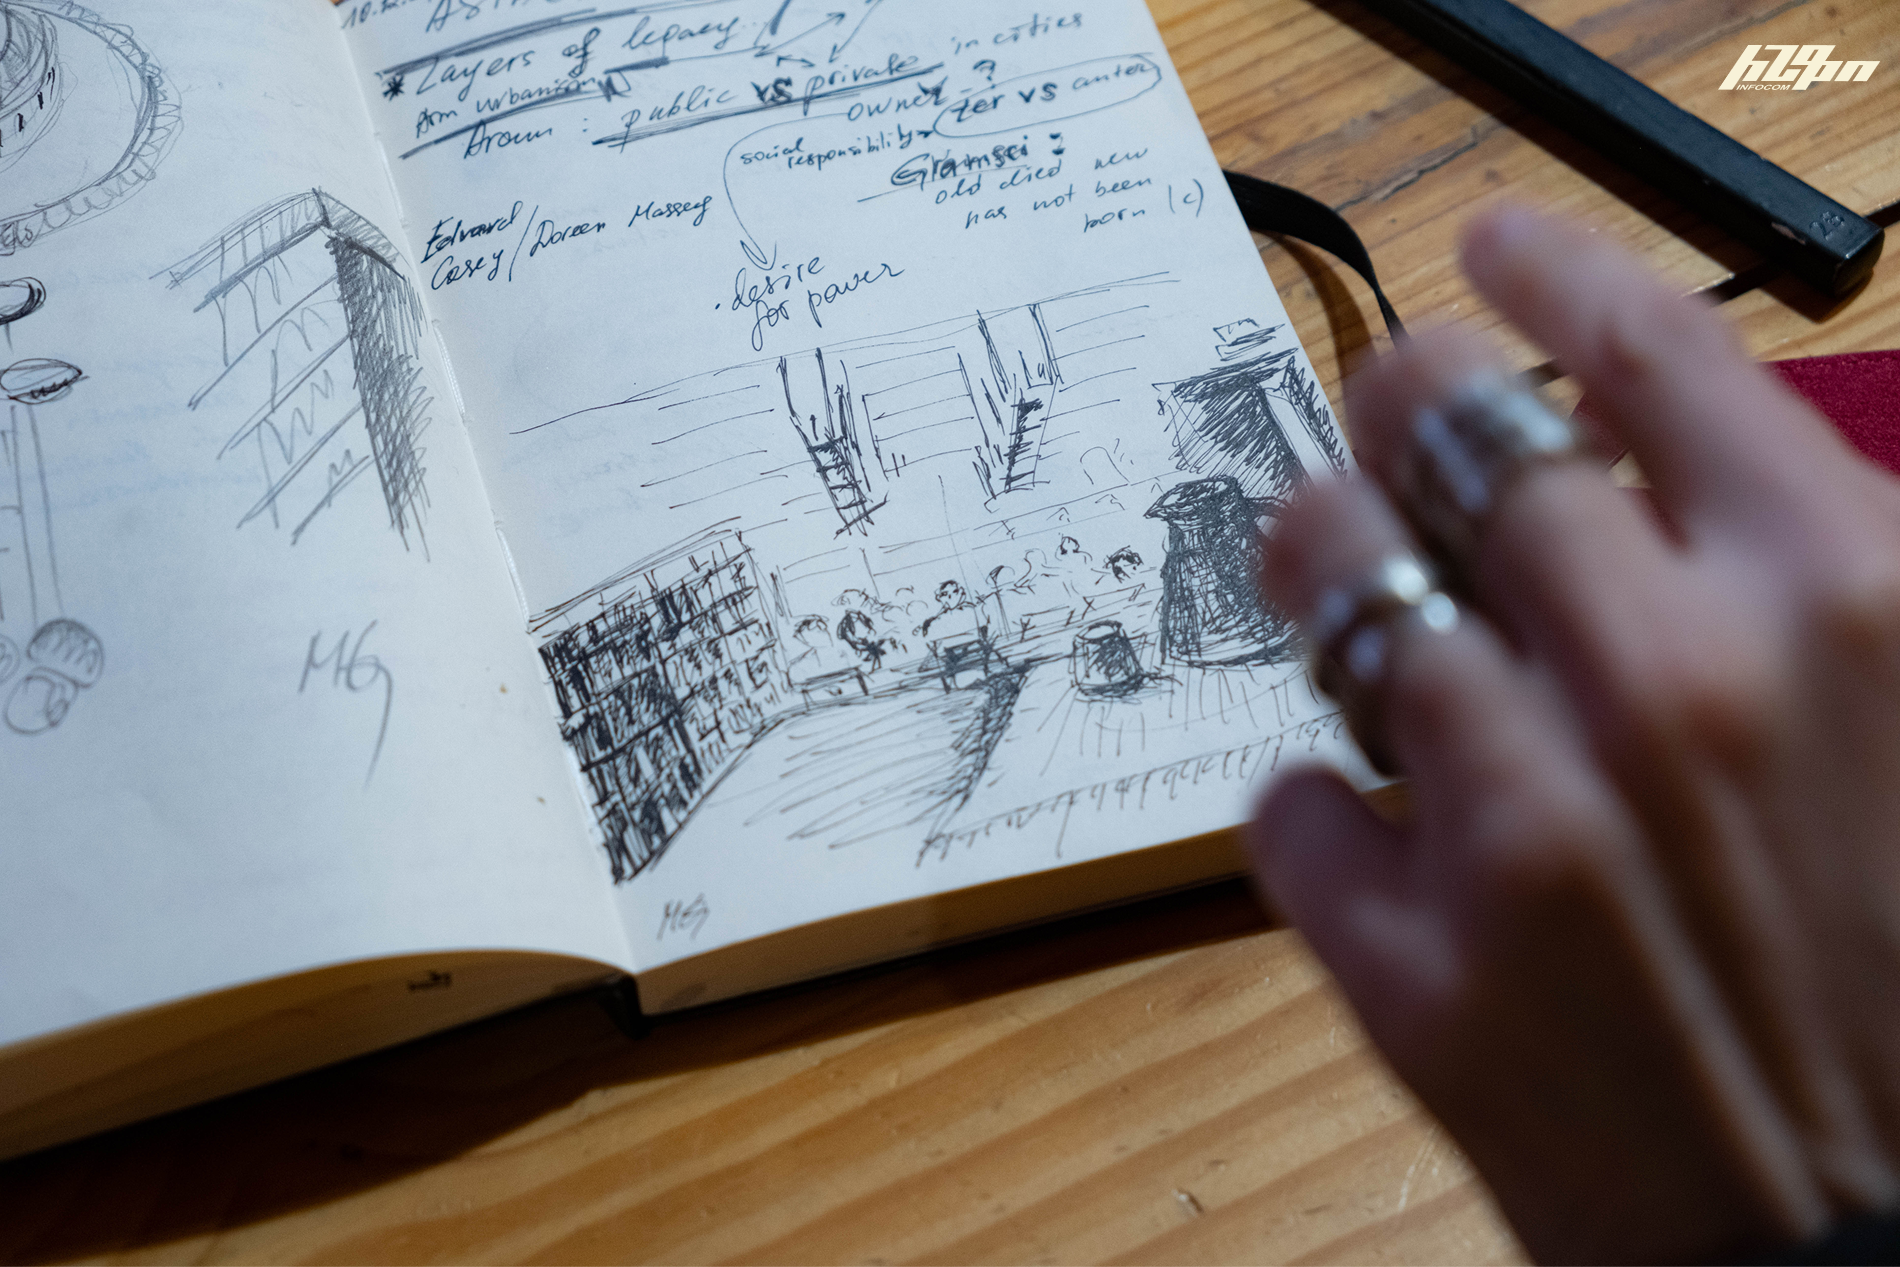 * Layers of legacy
Arm urbanism
public vs private in cities
owner - ?
ter vs anter
social
responsibility
Gramsci :
old died new
has not been
born (c)
Edward
Casey / Doreen Massey
. desire
for power
MG
MG
հետք
INFOCOM